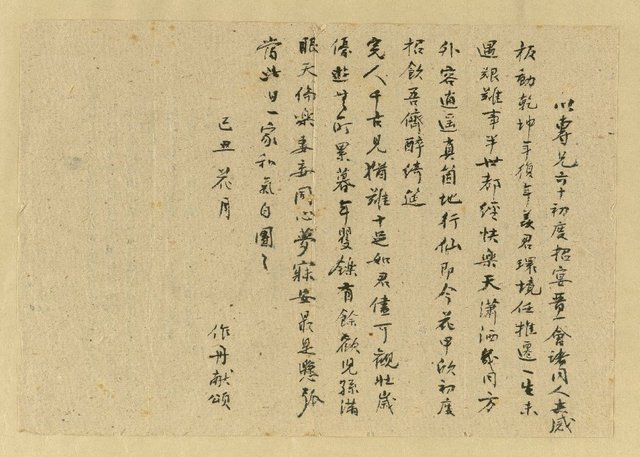 以專兄六十初度招宴晉一會諸同人共感
板動乾坤年復年羨君環境任推遷一生未
遇艱難事半世都經快樂天瀟洒幾同方
外客逍遥真箇地行仙即今花甲欣初度
招飲吾儕醉綺筵
完人千古見猶難十足如君儘可觀壯歲
優遊無所累暮年矍鑠有餘歡兒孫滿
眼天倫樂妻妾同心夢寐安最是懸弧
當此日一家和氣自團々
己丑花月
作丹献頌